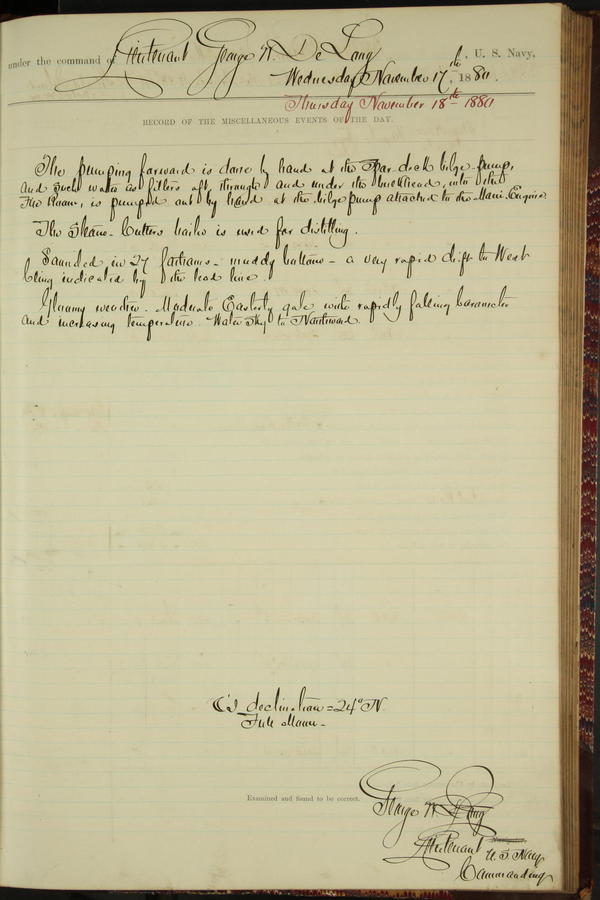 under the command of Lieutenant George W. De Long, U. S. Navy,
Wednesday November 17th, 1880.
Thursday November 18th 1880
RECORD OF THE MISCELLANEOUS EVENTS OF THE DAY.
The pumping forward is done by hand at the Spar-deck bilge-pump,
and such water as filters aft through and under the bulkhead, into the
Fire Room, is pumped out by hand at the bilge pump attached to the Main Engine.
The Steam-Cutters boiler is used for distilling.
Sounded in 27 fathoms - muddy bottom - a very rapid drift to West
being indicated by the lead line.
Gloomy weather. Moderate Easterly gale with rapidly falling barometer
and increasing temperature. Water Sky to Northward.
☾'s declination = 24° N.
Full Moon -
Examined and found to be correct.
George W. De Long
Lieutenant U.S. Navy
Commanding